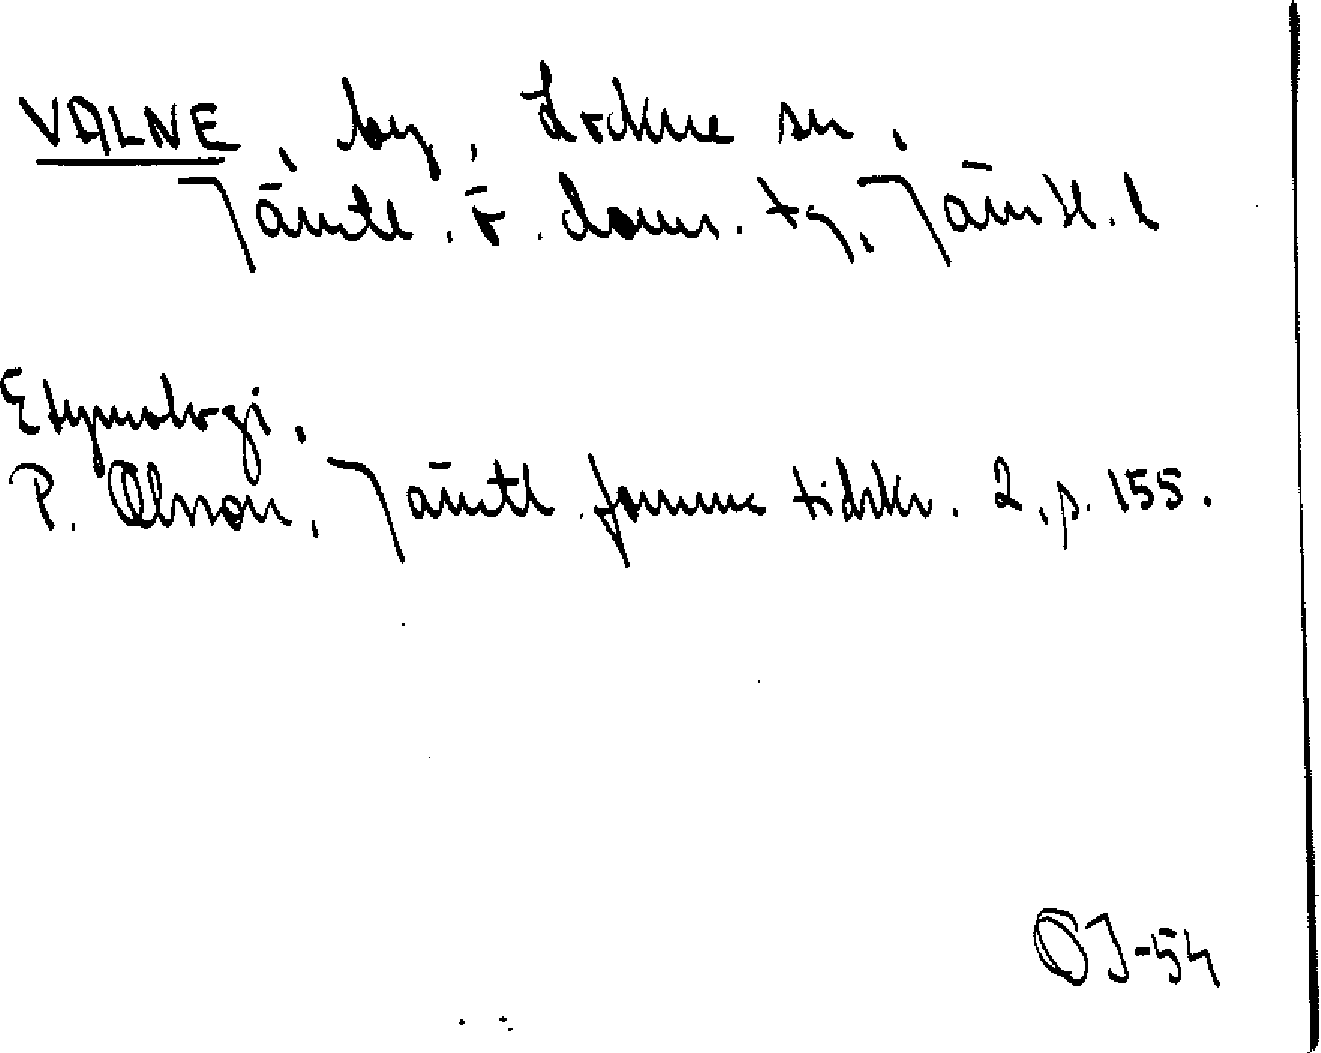 VALNE, by, Lockne sn,
Jämtl. ö. doms. tg, Jämtl. l
Etymologi.
P. Olsson, Jämtl. fornm tidskr. 2, p. 155.
OJ-54